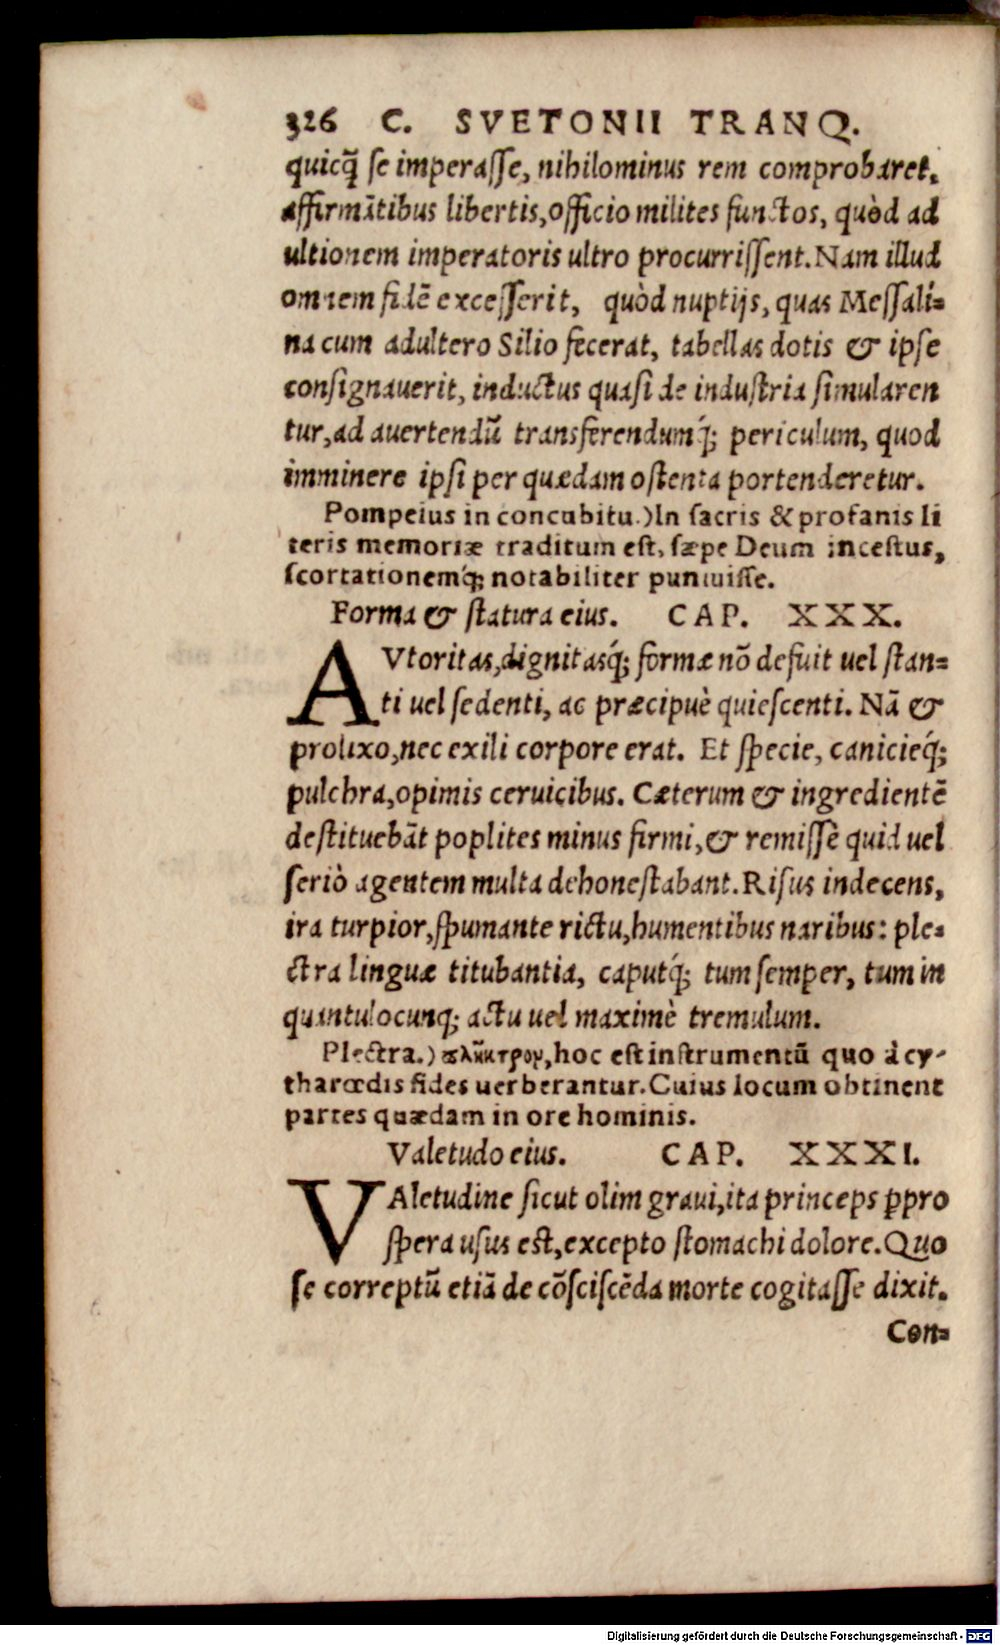 326 C. SVETONII TRANQ.
quicq̃ se imperasse, nihilominus rem comprobaret,
affirmãtibus libertis, officio milites functos, quòd ad
ultionem imperatoris ultro procurrissent. Nam illud
omnem fidẽ excesserit, quòd nuptijs, quas Messali=
na cum adultero Silio fecerat, tabellas dotis & ipse
consignauerit, inductus quasi de industria simularen
tur, ad auertendũ transferendumq́; periculum, quod
imminere ipsi per quædam ostenta portenderetur.
Pompeius in concubitu.) In sacris & profanis li
teris memoriæ traditum est, sæpe Deum incestus,
scortationemq́; notabiliter puniuisse.
Forma & statura eius. CAP. XXX.
AVtoritas, dignitasq́; formæ nõ defuit uel stan=
ti uel sedenti, ac præcipuè quiescenti. Nã &
prolixo, nec exili corpore erat. Et specie, canicieq́;
pulchra, opimis ceruicibus. Cæterum & ingredientẽ
destituebãt poplites minus firmi, & remissè quid uel
seriò agentem multa dehonestabant. Risus indecens,
ira turpior, spumante rictu, humentibus naribus: ple=
ctra linguæ titubantia, caputq́; tum semper, tum in
quantulocunq; actu uel maximè tremulum.
Plectra.) πλῆκτρον, hoc est instrumentũ quo à cy-
tharœdis fides uerberantur. Cuius locum obtinent
partes quædam in ore hominis.
Valetudo eius. CAP. XXXI.
VAletudine sicut olim graui, ita princeps ꝓpro
spera usus est, excepto stomachi dolore. Quo
se correptũ etiã de cõsciscẽda morte cogitasse dixit.
Con=
Digitalisierung gefördert durch die Deutsche Forschungsgemeinschaft - DFG